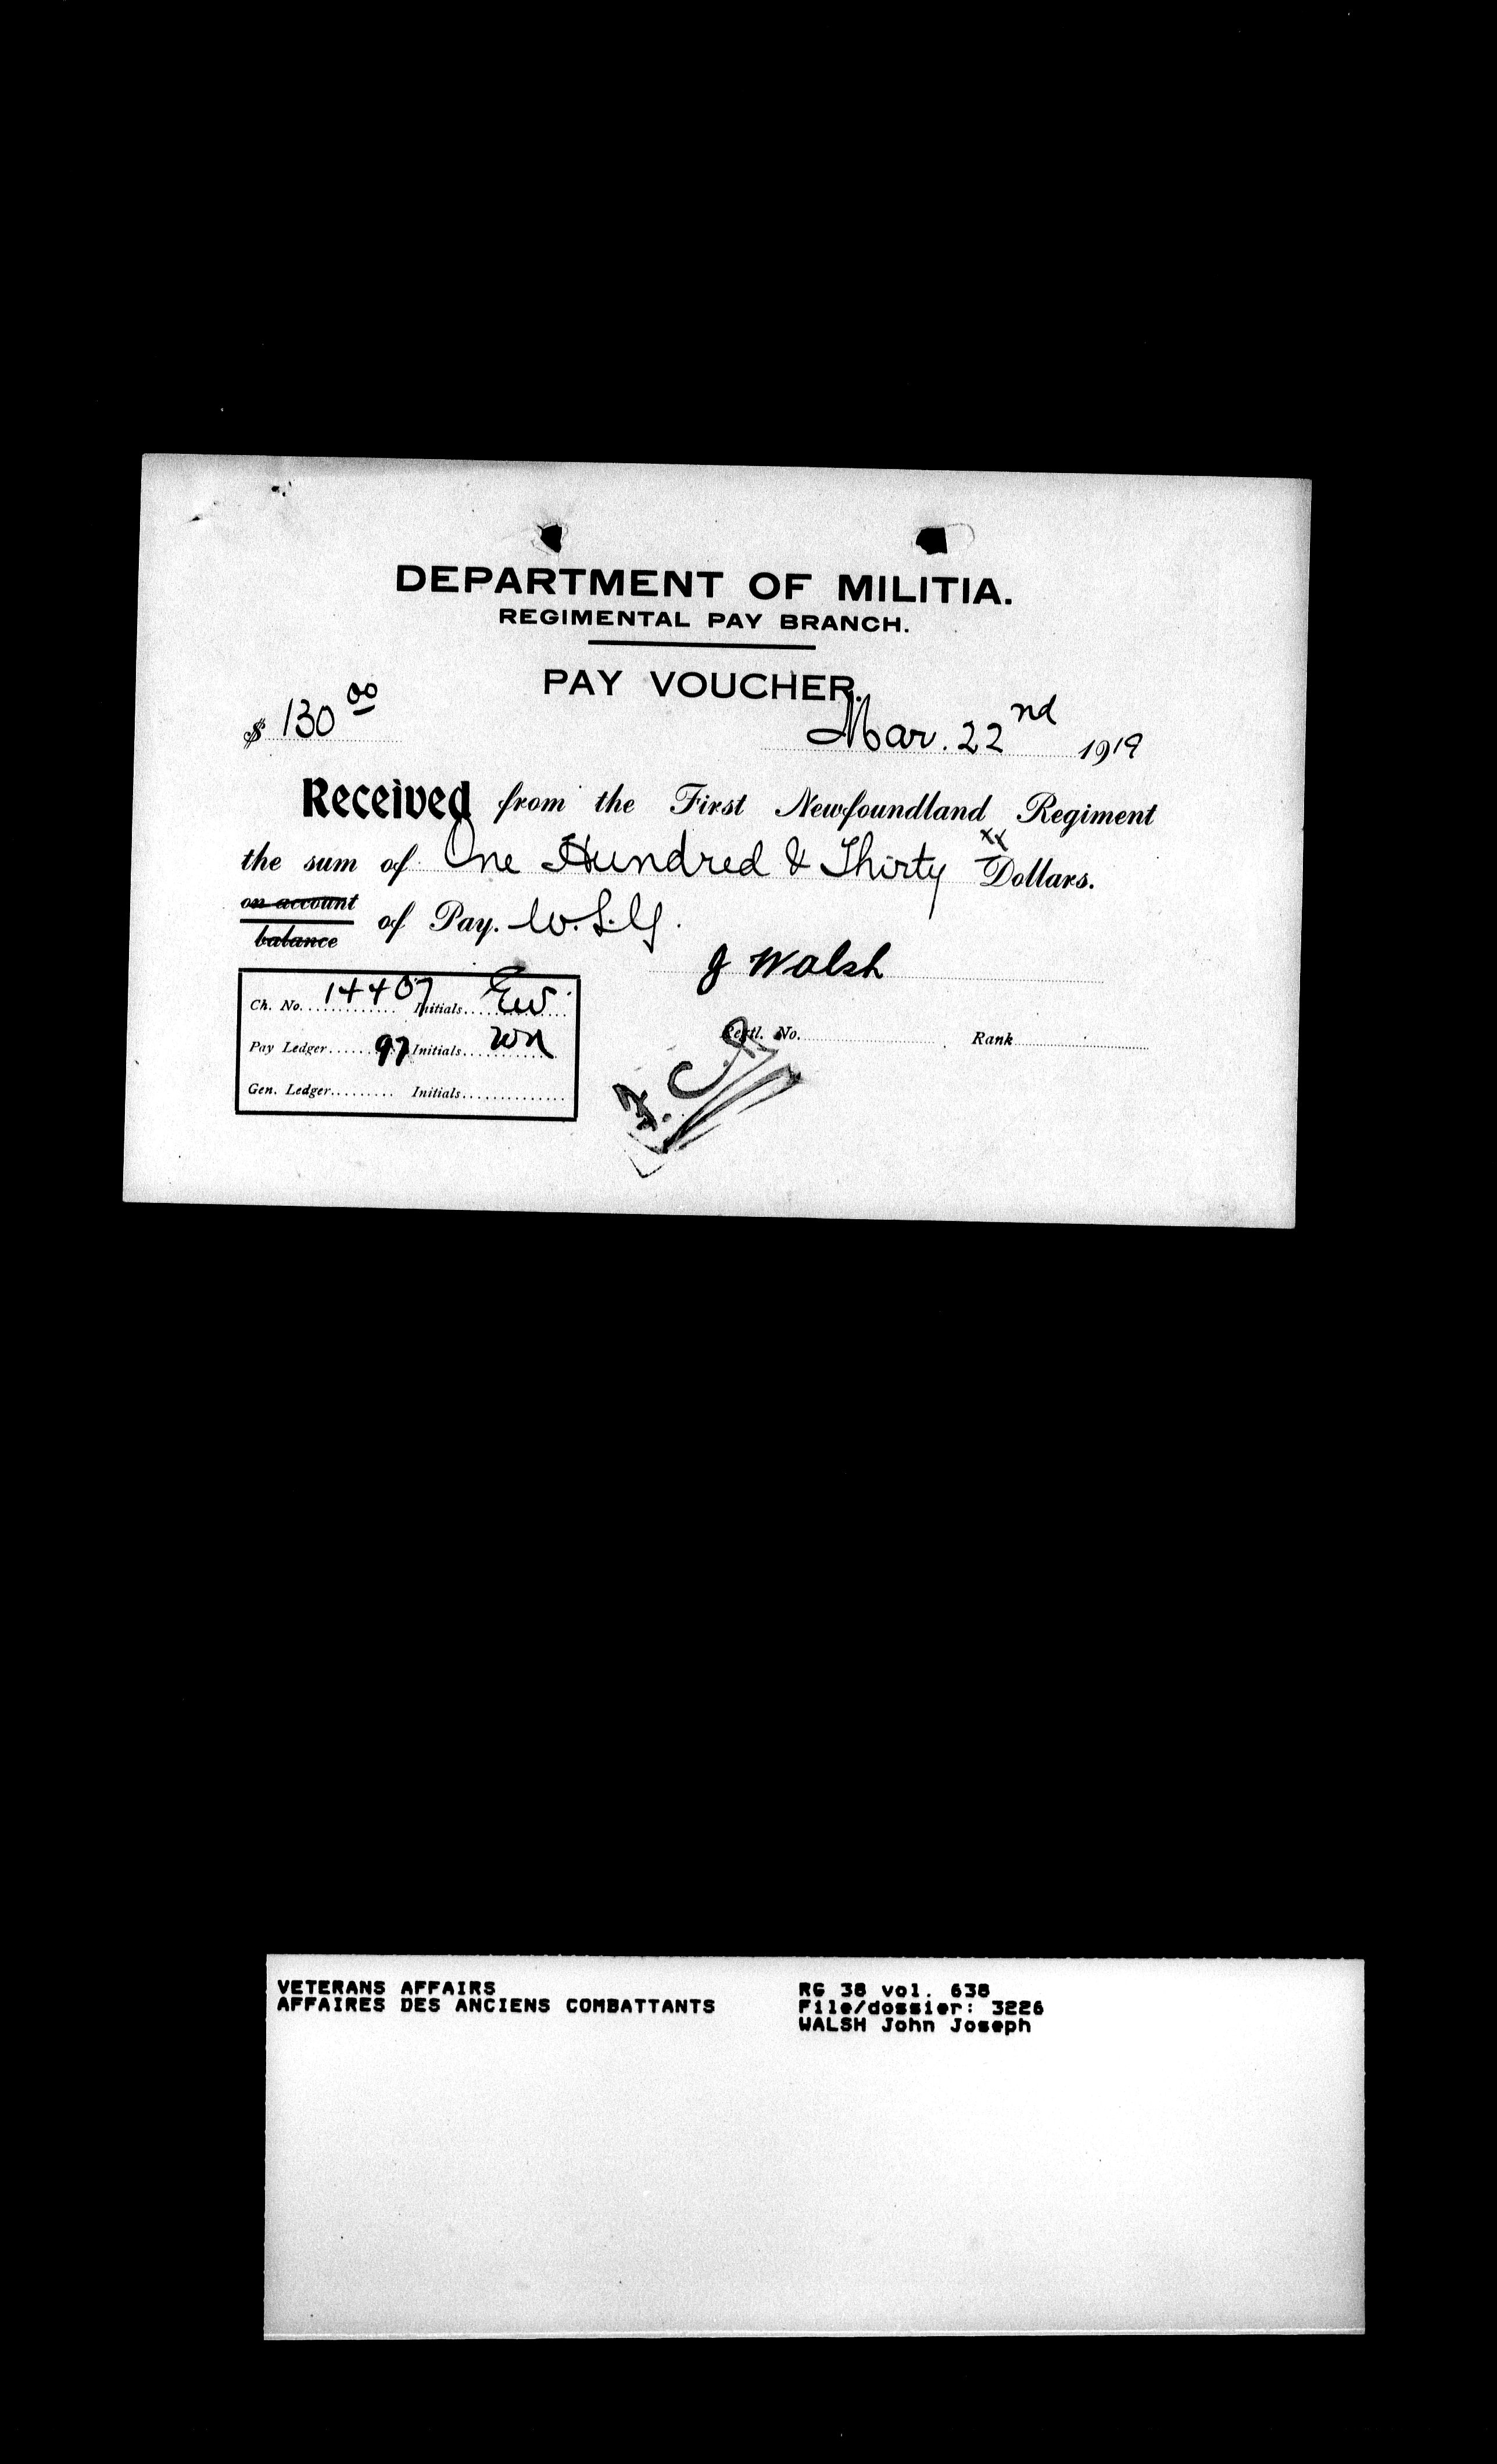 DEPARTMENT OF MILITIA.
REGIMENTAL PAY BRANCH.
PAY VOUCHER.
$ 130 00
Mar. 22nd 1919
Received from the First Newfoundland Regiment
the sum of One Hundred & Thirty xx Dollars.
on account
balance of Pay. W.S.G.
J Walsh
Ch. No. 14407 Initials EW
Pay Ledger 97 Initials WN
Gen. Ledger Initials
Regtl. No. Rank
VETERANS AFFAIRS
AFFAIRES DES ANCIENS COMBATTANTS
RG 38 vol. 638
File/dossier: 3226
WALSH John Joseph